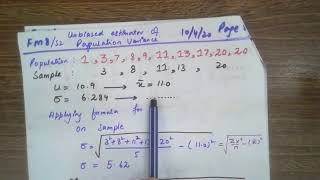 FM8/S2 Unbiased estimator of 10/4/20 Page
Population Variance
Population: 1, 3, 7, 8, 9, 11, 13, 17, 20, 20
Sample : 3, 8, 11, 13, 20
u = 10.9 → x̄ = 11.0
σ = 6.284 →
Applying formula for
on Sample
σ = √ 3²+8²+ 20² / 5 - (11.0)² = √ Σx²/n - (x̄)²
σ = 5.62